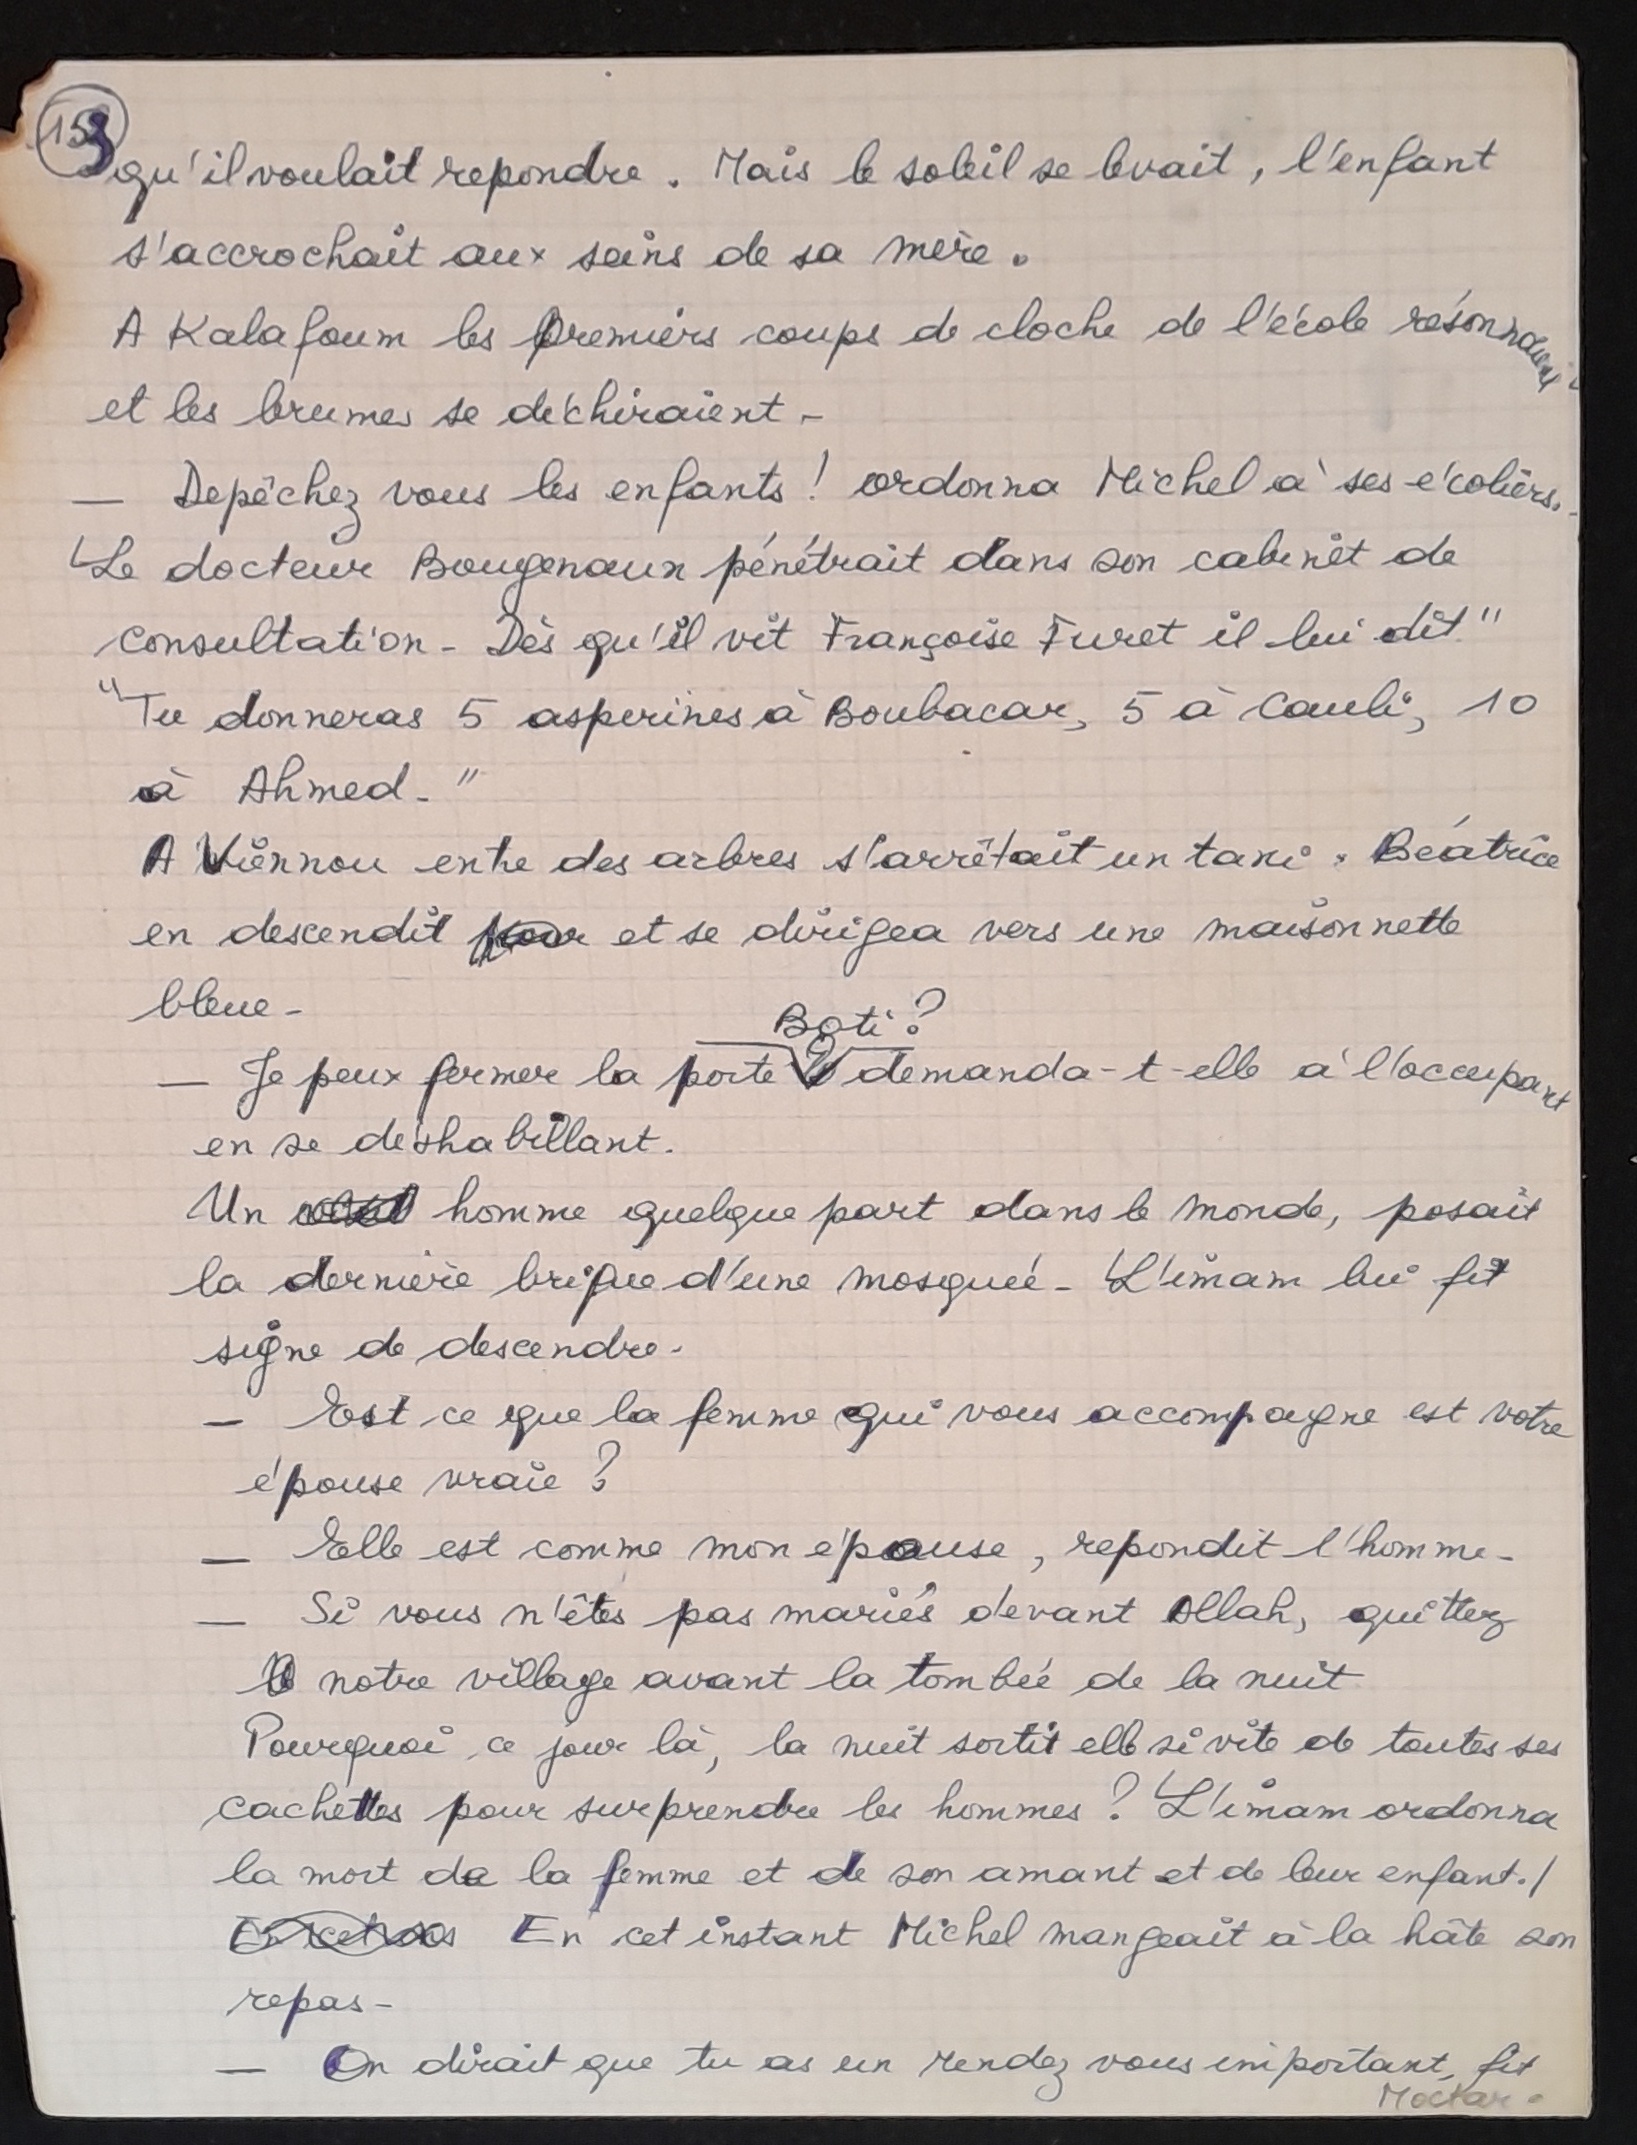 153
qu'il voulait repondre. Mais le soleil se levait, l'enfant
s'accrochait aux seins de sa mère.
A Kalafoum les premiers coups de cloche de l'école résonnaient
et les brumes se déchiraient -
— Depêchez vous les enfants ! ordonna Michel à ses écoliers.
Le docteur Bougenaux pénétrait dans son cabinet de
consultation - Dès qu'il vit Françoise Furet il lui dit "
"Tu donneras 5 asperines à Boubacar, 5 à Cauli, 10
à Ahmed - "
A Viênnou entre des arbres s'arrêtait un taxi. Béatrice
en descendit et se dirigea vers une maisonnette
bleue -
Boti ?
— Je peux fermer la porte demanda-t-elle à l'occupant
en se déshabillant.
Un homme quelque part dans le monde, posait
la dernière brique d'une mosquée - L'imam lui fit
signe de descendre -
— Est ce que la femme qui vous accompagne est votre
épouse vraie ?
— Elle est comme mon épouse, repondit l'homme -
— Si vous n'êtes pas mariés devant Allah, quittez
notre village avant la tombée de la nuit
Pourquoi ce jour là, la nuit sortit elle si vite de toutes ses
cachettes pour surprendre les hommes ? L'imam ordonna
la mort de la femme et de son amant et de leur enfant. /
En cet instant Michel mangeait à la hâte son
repas -
— On dirait que tu as un rendez vous important, fit
Moctar.